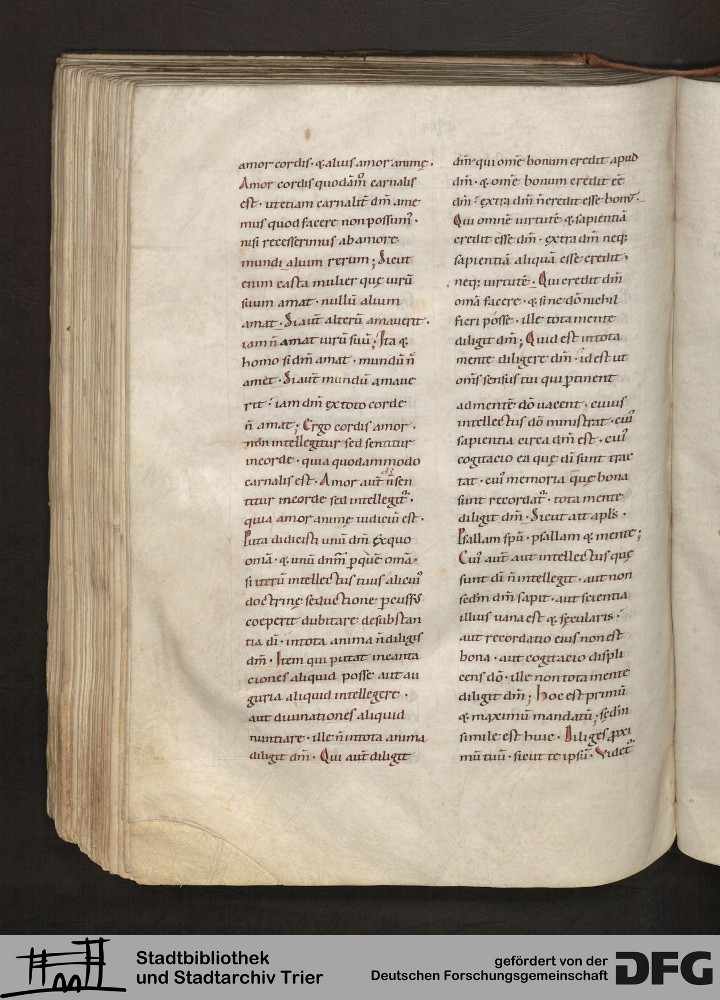 amor cordis · & alius amor animę ·
Amor cordis quodãm̊ carnalis
est · ut etiam carnalit̃ dm̃ ame
mus quod facere non possumꝰ ·
nisi recesserimus ab amore
mundi alium rerum ; Sicut
enim casta mulier quę virũ
suum amat · nullũ alium
amat · Si aut̃ alterũ amauerit ·
iam ñ amat uirũ suũ ; Ita &
homo si dm̃ amat · mundũ ñ
amet · Si aut̃ mundũ amaue
rit · iam dm̃ ex toto corde
ñ amat ; Ergo cordis amor ·
non intellegitur sed sentitur
in corde · quia quodammodo
carnalis est · Amor aut̃ ñ sen
titur in corde sed intellegit᷑ ·
quia amor animę iudiciũ est ·
Puta didicisti unũ dm̃ ex quo
om̃a · & unũ dnm̃ ꝑ quẽ om̃a ·
si iterũ intellectus tuus alicuiꝰ
doctrinę seductione pcussꝰ
coeperit dubitare de substan
tia di · in tota anima ñ diligis
dm̃ · Item qui putat incanta
ciones aliquid posse aut au
guria aliquid intellegere ·
aut diuinationes aliquid
nuntiare · ille ñ in tota anima
diligit dm̃ · Qui aut̃ diligit
dm̃ · qui om̃e bonum credit apud
dm̃ · & om̃e bonum credit eẽ
dm̃ · extra dm̃ ñ credit esse bonũ ·
Qui omnẽ uirtutẽ & sapientiã
credit esse dm̃ · extra dm̃ neq;
sapientiã aliquã esse credit ·
neq; uirtutẽ · Qui credit dm̃
om̃a facere · & sine dõ nichil
fieri posse · ille tota mente
diligit dm̃ ; Quid est in tota
mente diligere dm̃ · id est ut
om̃s sensus tui qui ꝑtinent
ad mentẽ dõ uacent · cuius
intellectus dõ ministrat · cuiꝰ
sapientia circa dm̃ est · cuiꝰ
cogitacio ea quę di sunt trac
tat · cuiꝰ memoria quę bona
sunt recordat᷑ · tota mente
diligit dm̃ · Sicut ait apls̃ ·
Psallam spũ · psallam & mente ;
Cuiꝰ aut̃ aut intellectus quę
sunt di ñ intellegit · aut non
sed̃m dm̃ sapit · aut scientia
illius uana est & sęcularis ·
aut recordatio eius non est
bona · aut cogitacio displi
cens dõ · ille non tota mente
diligit dm̃ ; hoc est primũ
& maximũ mandatũ ; sed̃m
simile est huic · Diliges ꝓxi
mũ tuũ · sicut te ipsũ · Videt᷑
Stadtbibliothek
und Stadtarchiv Trier
gefördert von der
Deutschen Forschungsgemeinschaft
DFG